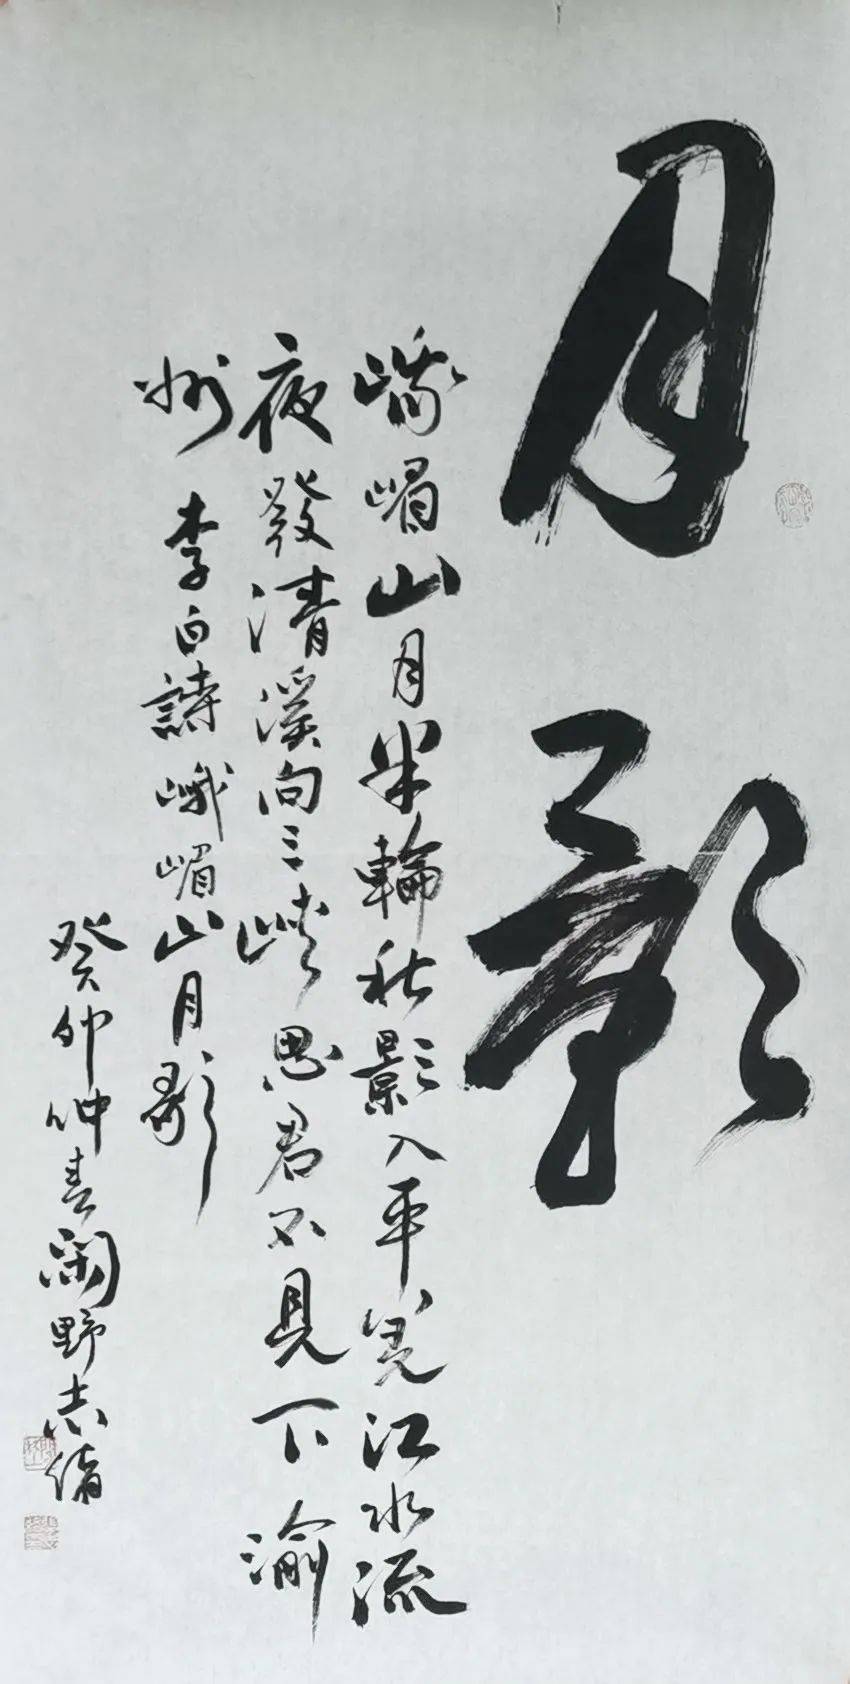 月影
峨嵋山月半輪秋影入平羌江水流
夜發清溪向三峽思君不見下渝
州 李白詩峨嵋山月歌
癸卯仲春閑野志偹